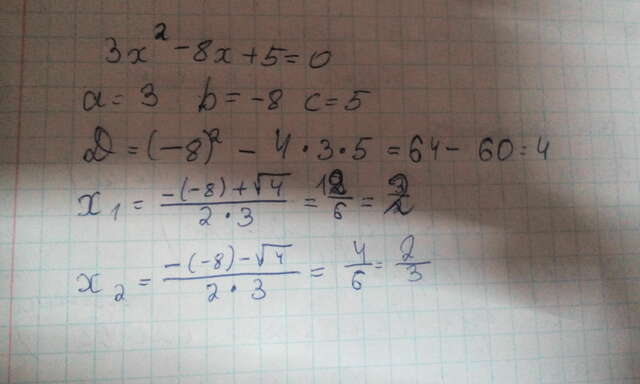 3x² - 8x + 5 = 0
a = 3 b = -8 c = 5
D = (-8)² - 4 · 3 · 5 = 64 - 60 = 4
x₁ = (-(-8) + √4) / (2 · 3) = / 6 =
x₂ = (-(-8) - √4) / (2 · 3) = 4/6 = 2/3